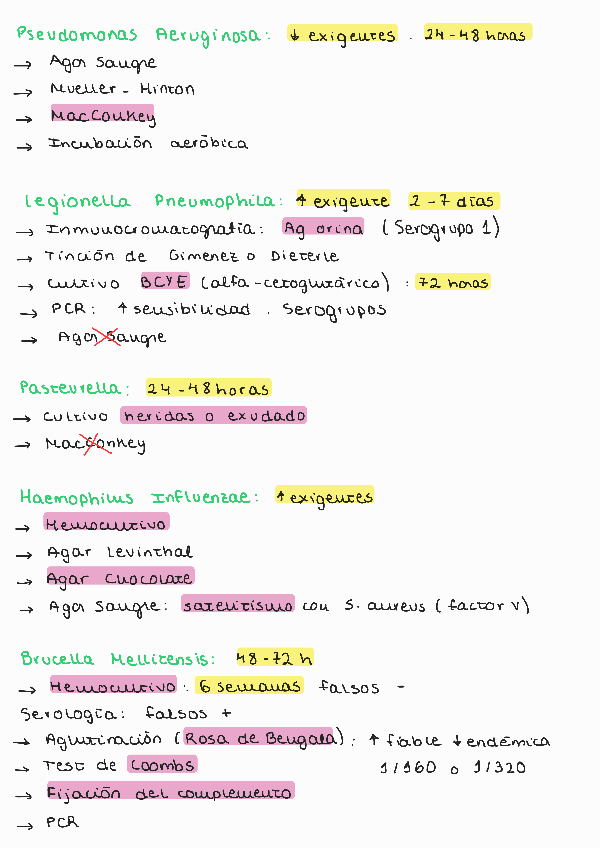 Pseudomonas Aeruginosa: ↓ exigentes . 24-48 horas
→ Agar Sangre
→ Mueller - Hinton
→ MacConkey
→ Incubación aeróbica
Legionella Pneumophila: ↑ exigente 2-7 días
→ Inmunocromatografía: Ag orina (Serogrupo 1)
→ Tinción de Gimenez o Dieterle
→ Cultivo BCYE (alfa-cetoglutárico) : 72 horas
→ PCR: ↑ sensibilidad . Serogrupos
→ Agar Sangre
Pasteurella: 24-48 horas
→ Cultivo heridas o exudado
→ MacConkey
Haemophilus Influenzae: ↑ exigentes
→ Hemocultivo
→ Agar Levinthal
→ Agar Chocolate
→ Agar Sangre: satelitismo con S. aureus (factor V)
Brucella Mellitensis: 48-72 h
→ Hemocultivo : 6 semanas falsos -
Serología: falsos +
→ Aglutinación (Rosa de Bengala) : ↑ fiable ↓ endémica
→ Test de Coombs 1/160 o 1/320
→ Fijación del complemento
→ PCR